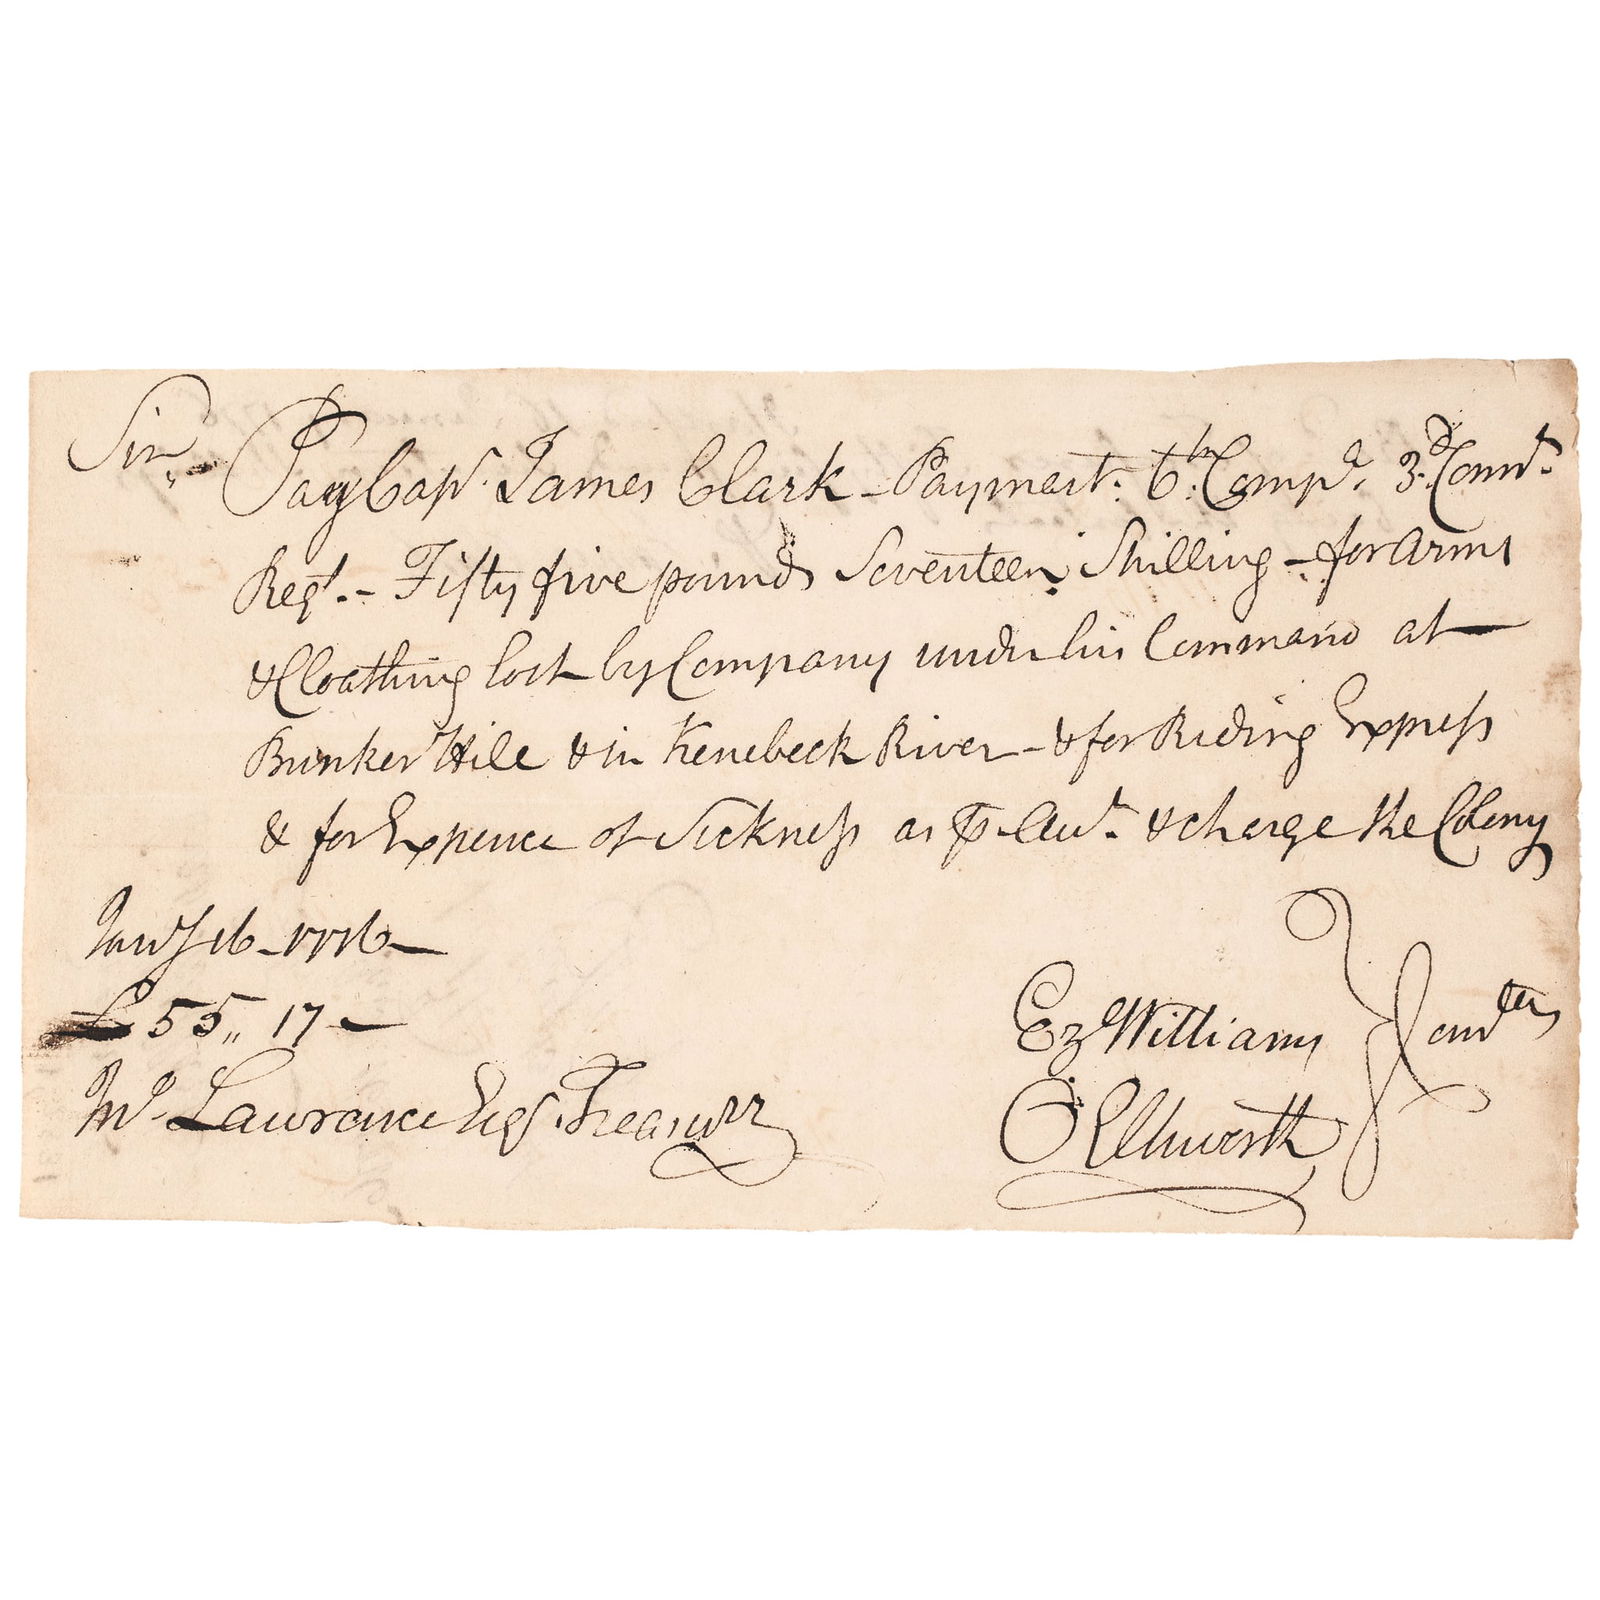 Sir,,
Pay Capt. James Clark – Paymast. 6th. Compa. 3d. Connt.
Regt. – Fifty five pounds Seventeen Shilling – for Arms
& Cloathing lost by Company under his Command at
Bunker Hill & in Kenebeck River – & for Riding Express
& for Expence of Sickness as ⅌ Acct. & charge the Colony
Jany 16 – 1776 –
£ 55,, 17 –
Ez Williams
Comttee
O Ellsworth
Mr. Lawrence Esqr. Treasurr